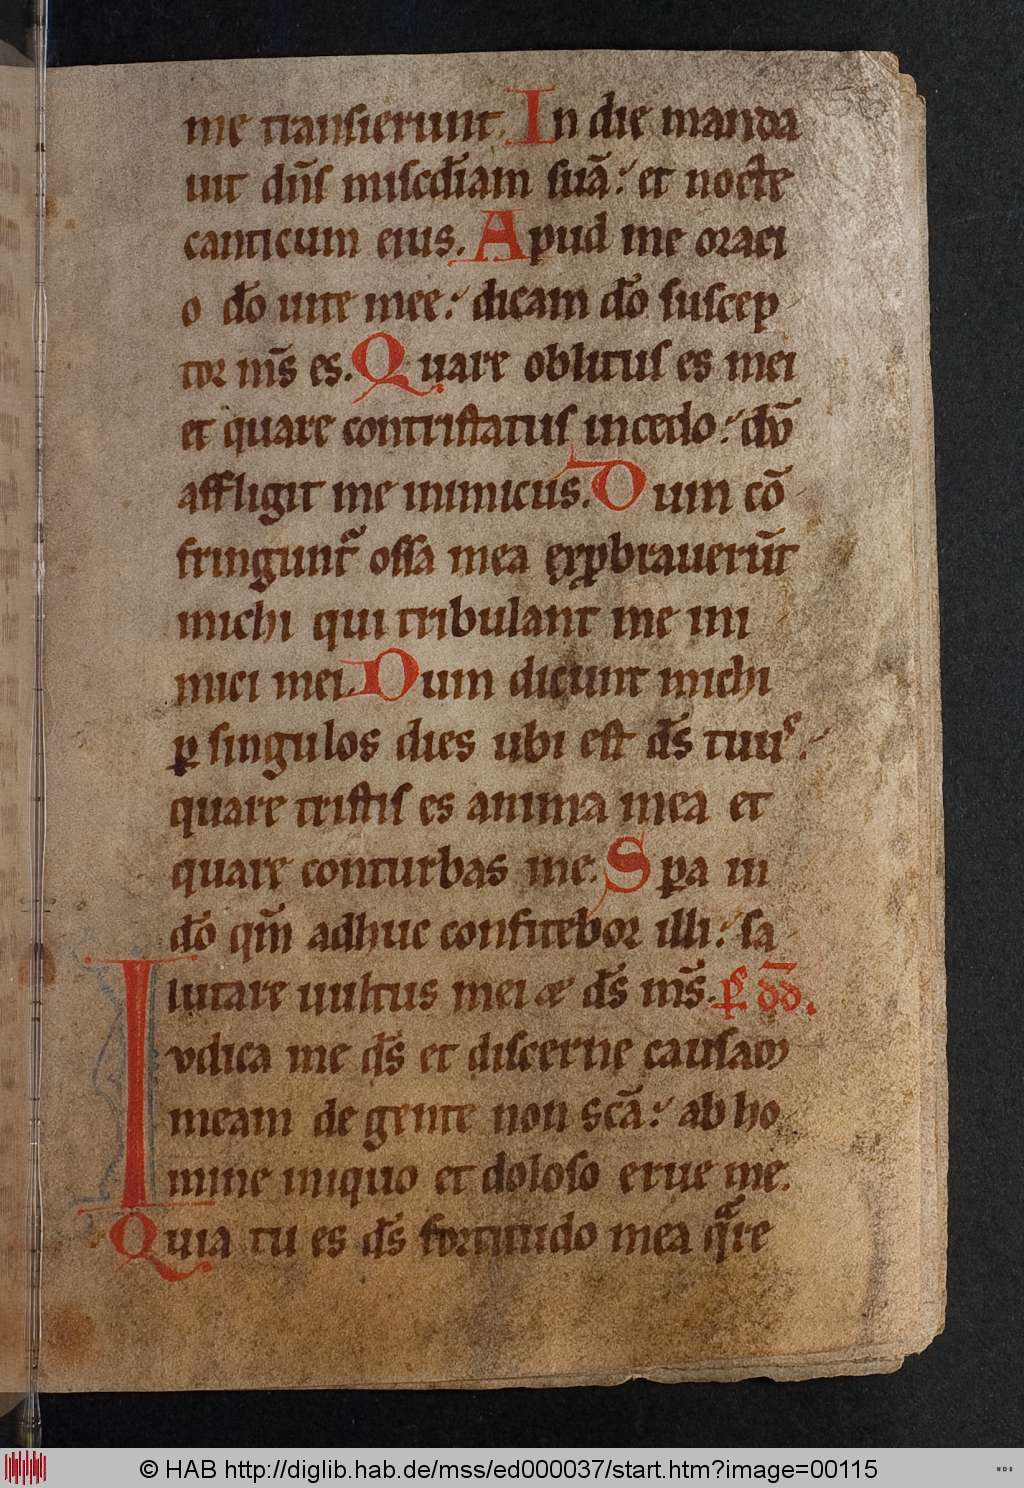 me transierunt. In die manda
uit dn̄s misc̄diam suā. et nocte
canticum eius. Apud me oraci
o dō uite mee. dicam dō suscep
tor m̄s es. Quare oblitus es mei
et quare contristatus incedo. dū
affligit me inimicus. Dum cō
fringunt᷑ ossa mea exp̱brauerūt
michi qui tribulant me ini
mici mei. Dum dicunt michi
ꝑ singulos dies ubi est ds̄ tuus.
quare tristis es anima mea et
quare conturbas me. Sꝑa in
dō qm̄ adhuc confitebor illi. sa
lutare uultus mei æ ds̄ m̄s. p̄s dd̄.
Iudica me ds̄ et discerne causam
meam de gente non scā. ab ho
mine iniquo et doloso erue me.
Quia tu es ds̄ fortitudo mea qͣre
© HAB http://diglib.hab.de/mss/ed000037/start.htm?image=00115